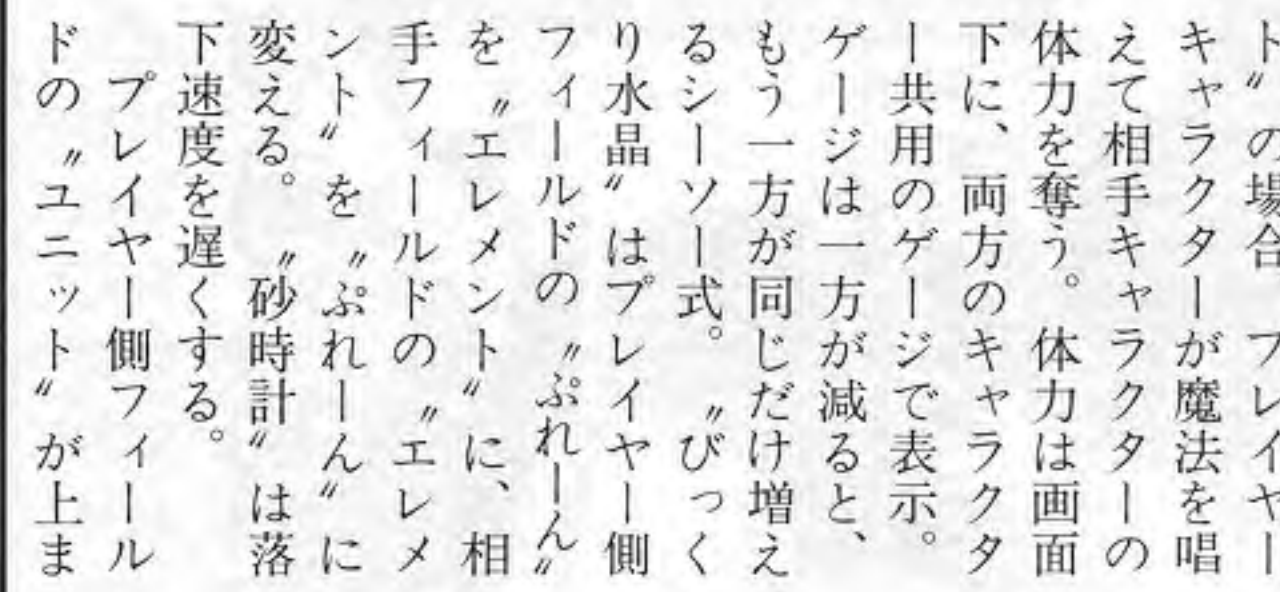 ト〟の場合、プレイヤー
キャラクターが魔法を唱
えて相手キャラクターの
体力を奪う。体力は画面
下に、両方のキャラクタ
ー共用のゲージで表示。
ゲージは一方が減ると、
もう一方が同じだけ増え
るシーソー式。〝びっく
り水晶〟はプレイヤー側
フィールドの〝ぷれーん〟
を〝エレメント〟に、相
手フィールドの〝エレメ
ント〟を〝ぷれーん〟に
変える。〝砂時計〟は落
下速度を遅くする。
プレイヤー側フィール
ドの〝ユニット〟が上ま